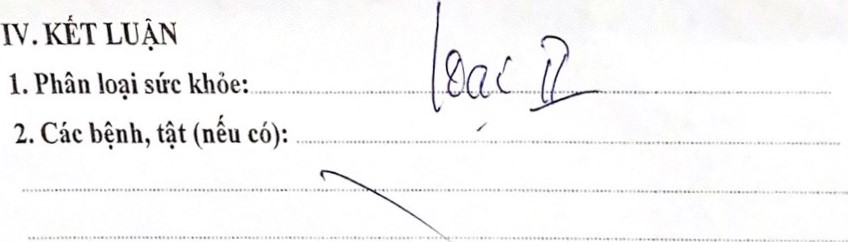 IV. KẾT LUẬN
1. Phân loại sức khỏe: loại II
2. Các bệnh, tật (nếu có):